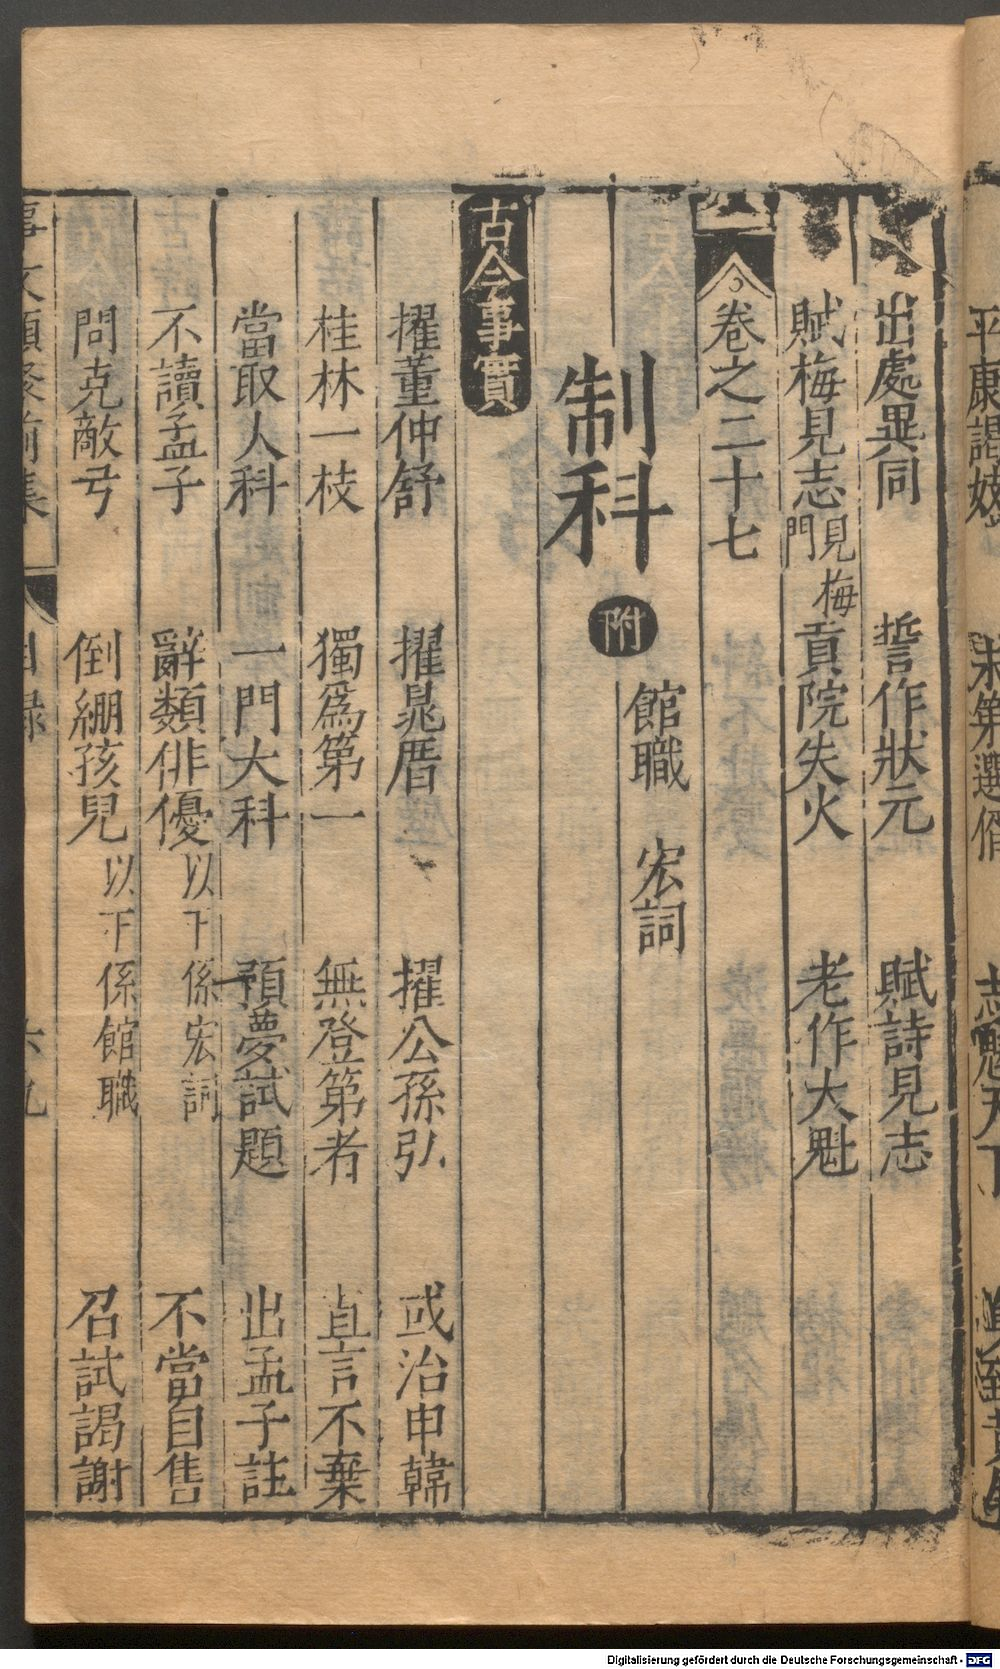 出處異同　誓作狀元　賦詩見志
賦梅見志見梅門　貢院失火　老作大魁
卷之二十七
館職　宏詞
制科附
古今事實
擢董仲舒　擢鼂厝　擢公孫弘　或治申韓
桂林一枝　獨爲第一　無登第者　直言不棄
當取人科　一門大科　預夢試題　出孟子註
不讀孟子　辭類俳優以下係宏詞　不當自售
問克敵弓　倒繃孩兒以下係館職　召試謁謝
事文類聚前集　目録　六九
平康謁妓　未第選　志魁天下
Digitalisierung gefördert durch die Deutsche Forschungsgemeinschaft - DFG